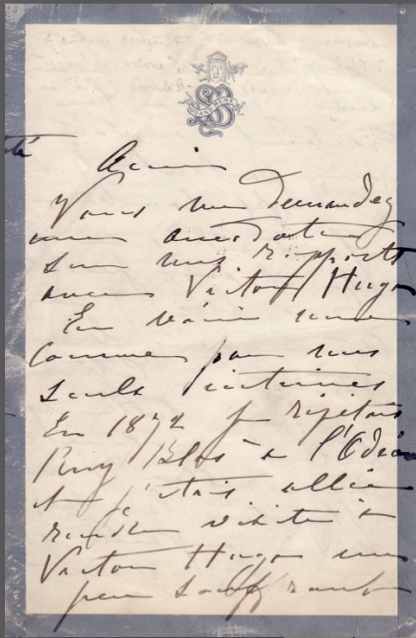 Ami
Vous me demandez
une anecdote
sur mes rapports
avec Victor Hugo
En voici une
connue par nous
seuls intimes
En 1872 je répétais
Ruy Blas à l'Odéon
et j'étais allée
rendre visite à
Victor Hugo un
peu souffrant